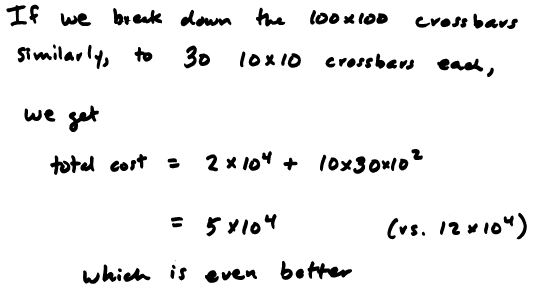 If we break down the 100x100 crossbars
similarly, to 30 10x10 crossbars each,
we get
total cost = 2 x 10⁴ + 10x30x10²
= 5 x10⁴ (vs. 12 x 10⁴)
which is even better